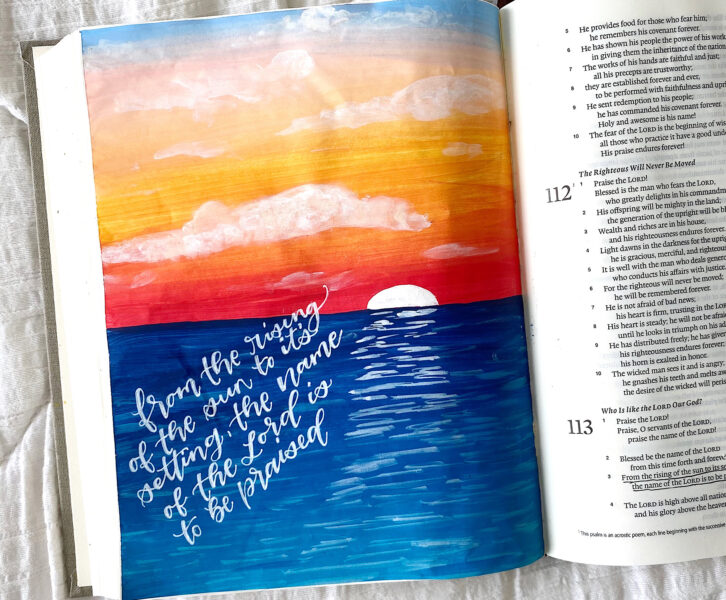 from the rising
of the sun to it's
setting, the name
of the Lord is
to be praised
5 He provides food for those who fear him;
he remembers his covenant forever.
6 He has shown his people the power of his
in giving them the inheritance of the
7 The works of his hands are faithful and just;
all his precepts are trustworthy;
8 they are established forever and ever,
to be performed with faithfulness and
9 He sent redemption to his people;
he has commanded his covenant forever.
Holy and awesome is his name!
10 The fear of the LORD is the beginning of
all those who practice it have a good
His praise endures forever!
The Righteous Will Never Be Moved
112 1 Praise the LORD!
Blessed is the man who fears the LORD,
who greatly delights in his
2 His offspring will be mighty in the land;
the generation of the upright will be
3 Wealth and riches are in his house,
and his righteousness endures forever.
4 Light dawns in the darkness for the
he is gracious, merciful, and
5 It is well with the man who deals
who conducts his affairs with
6 For the righteous will never be moved;
he will be remembered forever.
7 He is not afraid of bad news;
his heart is firm, trusting in the
8 His heart is steady; he will not be
until he looks in triumph on his
9 He has distributed freely; he has
his righteousness endures forever;
his horn is exalted in honor.
10 The wicked man sees it and is angry;
he gnashes his teeth and melts
the desire of the wicked will
Who Is like the LORD Our God?
113 1 Praise the LORD!
Praise, O servants of the LORD,
praise the name of the LORD!
2 Blessed be the name of the LORD
from this time forth and
3 From the rising of the sun to its
the name of the LORD is to be
4 The LORD is high above all
and his glory above the
1 This psalm is an acrostic poem, each line beginning with the